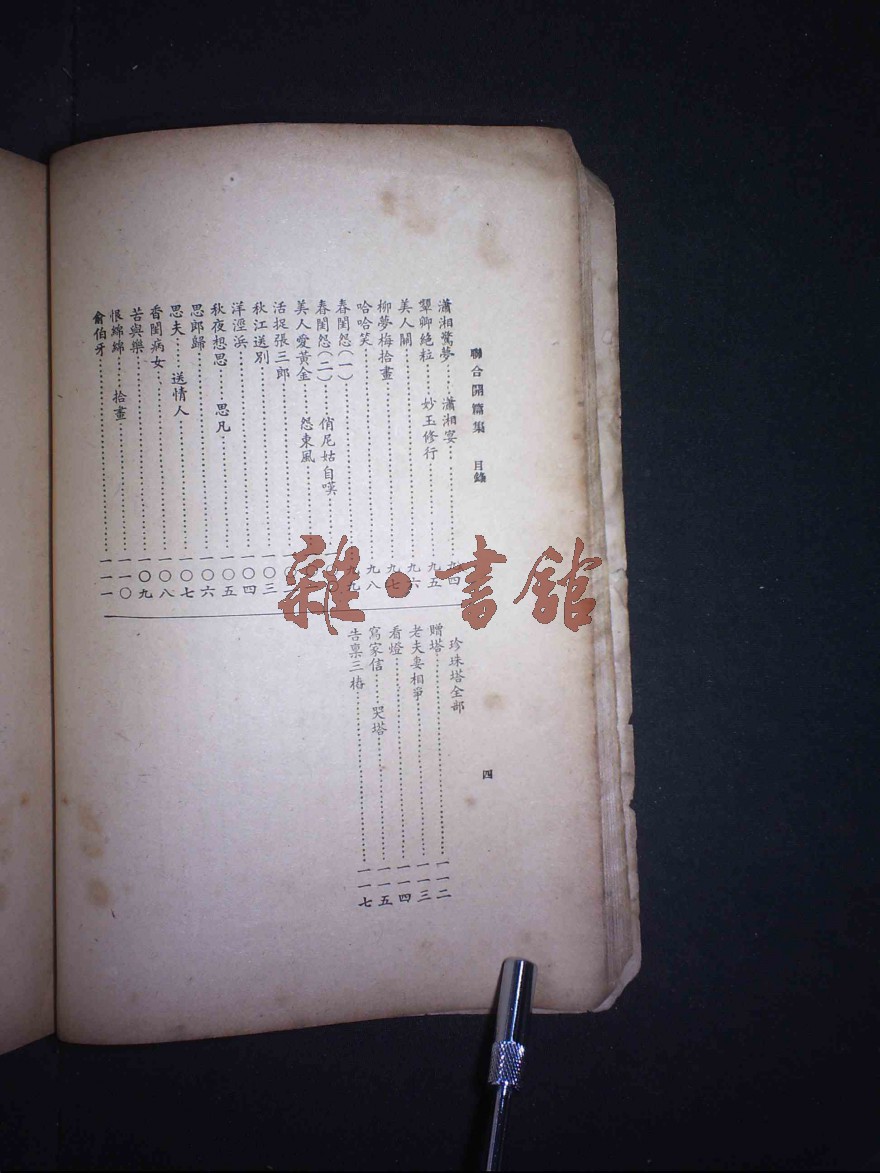 聯合開篇集 目錄 四
瀟湘驚夢……瀟湘宴……九四
顰卿絕粒……妙玉修行……九五
美人關……九六
柳夢梅拾畫……九七
哈哈笑……九八
春閨怨(一)……九九
春閨怨(二)……俏尼姑自嘆……
美人愛黃金……怨東風……
活捉張三郎……
秋江送別……一〇三
洋涇浜……一〇四
秋夜想思……思凡……一〇五
思郎歸……一〇六
思夫……送情人……一〇七
香閨病女……一〇八
苦與樂……一〇九
恨綿綿……拾畫……一一〇
俞伯牙……一一一
珍珠塔全部
贈塔……一一二
老夫妻相爭……一一三
看燈……一一四
寫家信……哭塔……一一五
告稟三樁……一一七
雜·書館